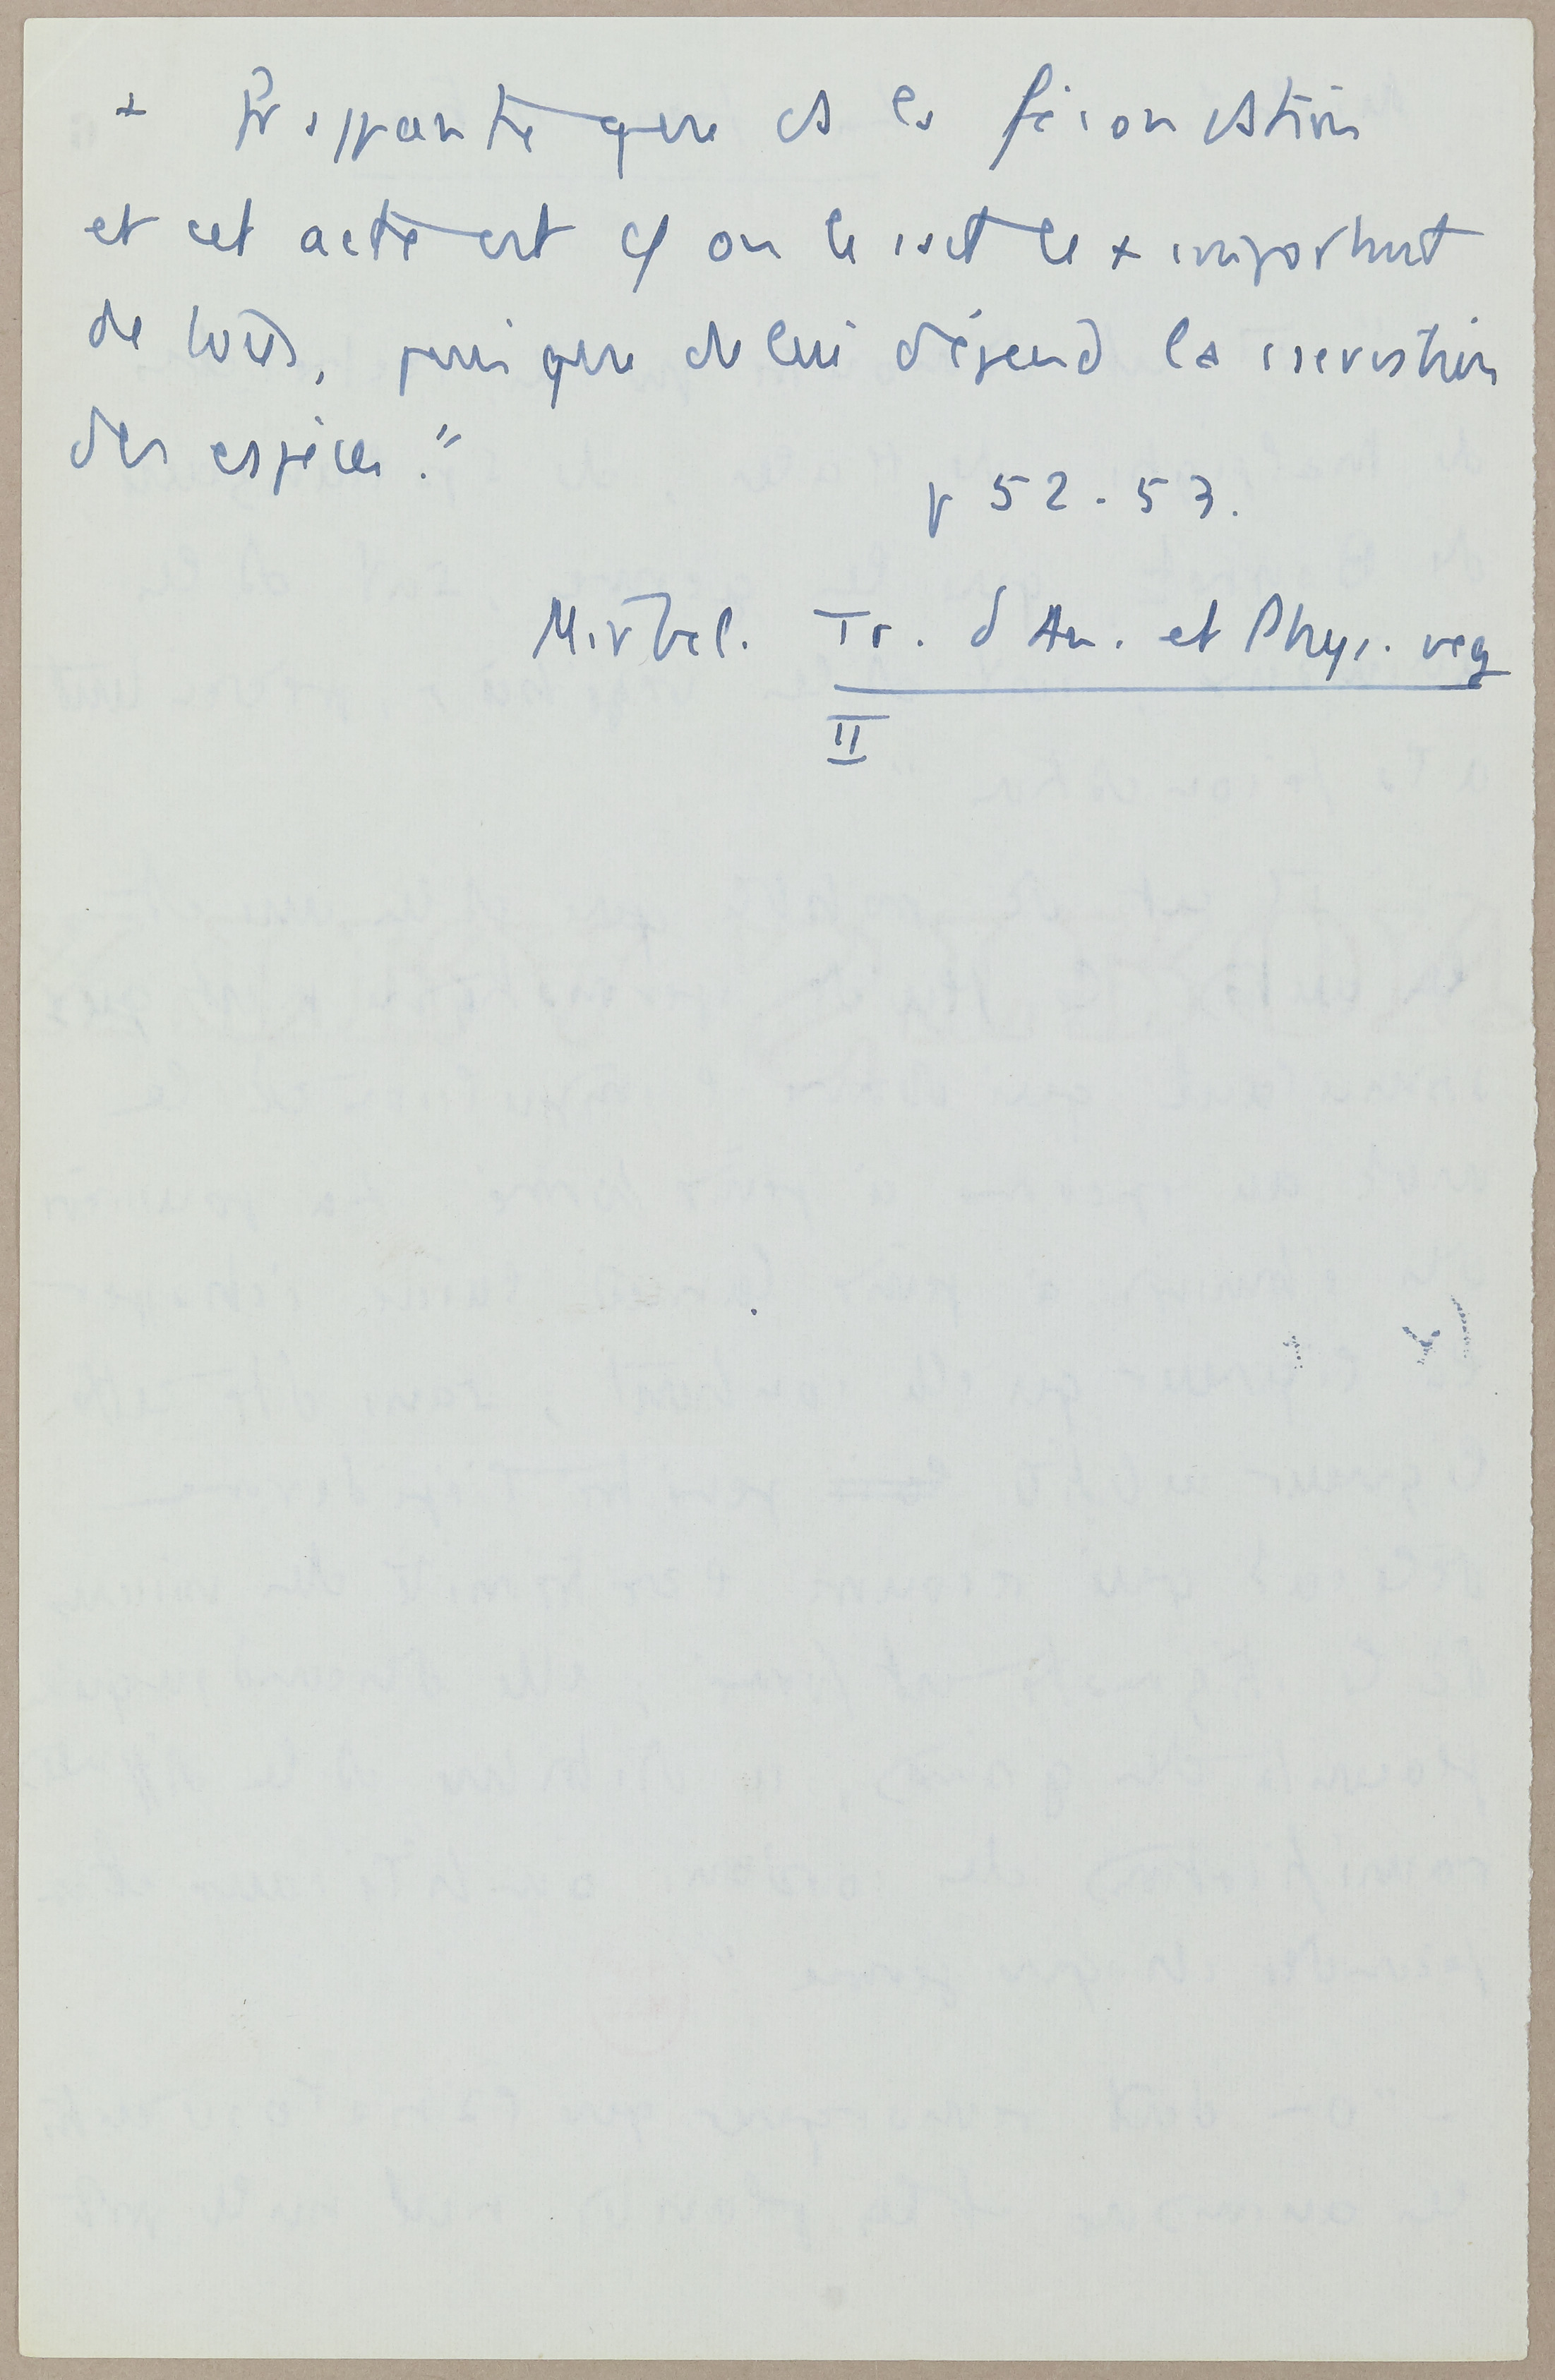 + frappante que ds la fécondation
et cet acte est cf on le sait le + important
de tous, puisque de lui dépend la conservation
des espèces."
p 52-53.
Mirbel. Tr. d'An. et Phys. veg
II